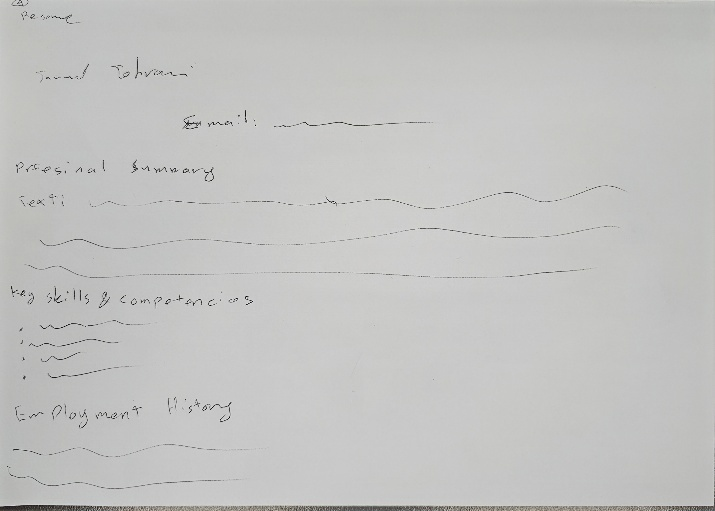 A
Resume
Tehrani
Email:
Prfesinal Summary
Text:
Key skills & competencies
Employment History